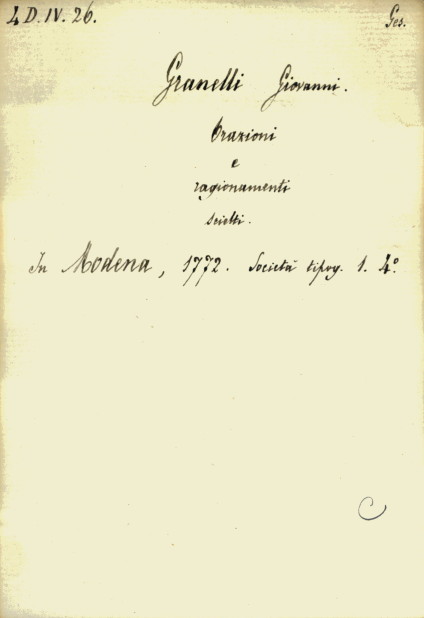 4 D. IV. 26. Ges.
Granelli Giovanni.
Orazioni
e
ragionamenti
scielti.
In Modena, 1772. Società tipog. 1. 4º.
C